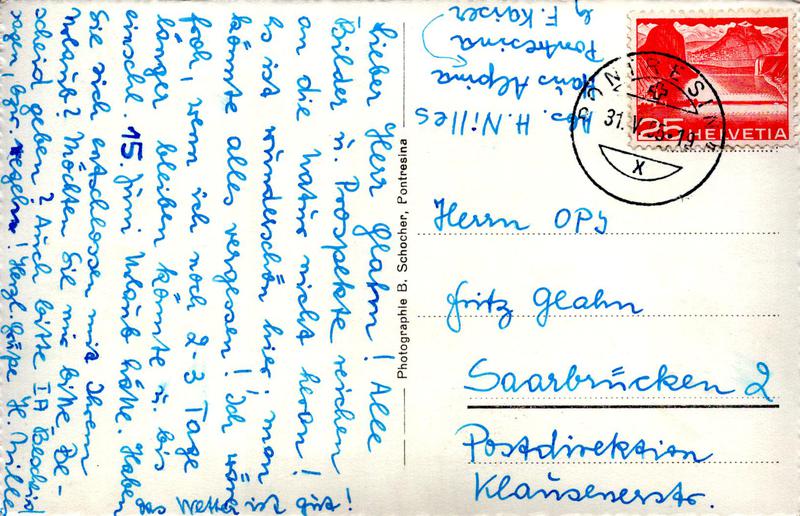 Lieber Herr Glahn! Alle
Bilder u. Prospekte reichen
an die Natur nicht heran!
Es ist wunderschön hier; man
könnte alles vergessen! Ich wäre
froh, wenn ich noch 2-3 Tage
länger bleiben könnte u. bis
einschl. 15 Juni Urlaub hätte. Haben
Sie sich entschlossen mit Ihrem
Urlaub? Möchten Sie mir bitte Be-
scheid geben? Auch bitte IA Bescheid
sagen, bzw. regeln! Herzl. Grüße H. Nilles
das Wetter ist gut!
Abs. H. Nilles
Haus Alpina
Pontresina
by F. Kaiser
Photographie B. Schocher, Pontresina
PONTRESINA
31. V.
19
X
25 HELVETIA
Herrn OPJ
Fritz Glahn
Saarbrücken 2
Postdirektion
Klausenerstr.